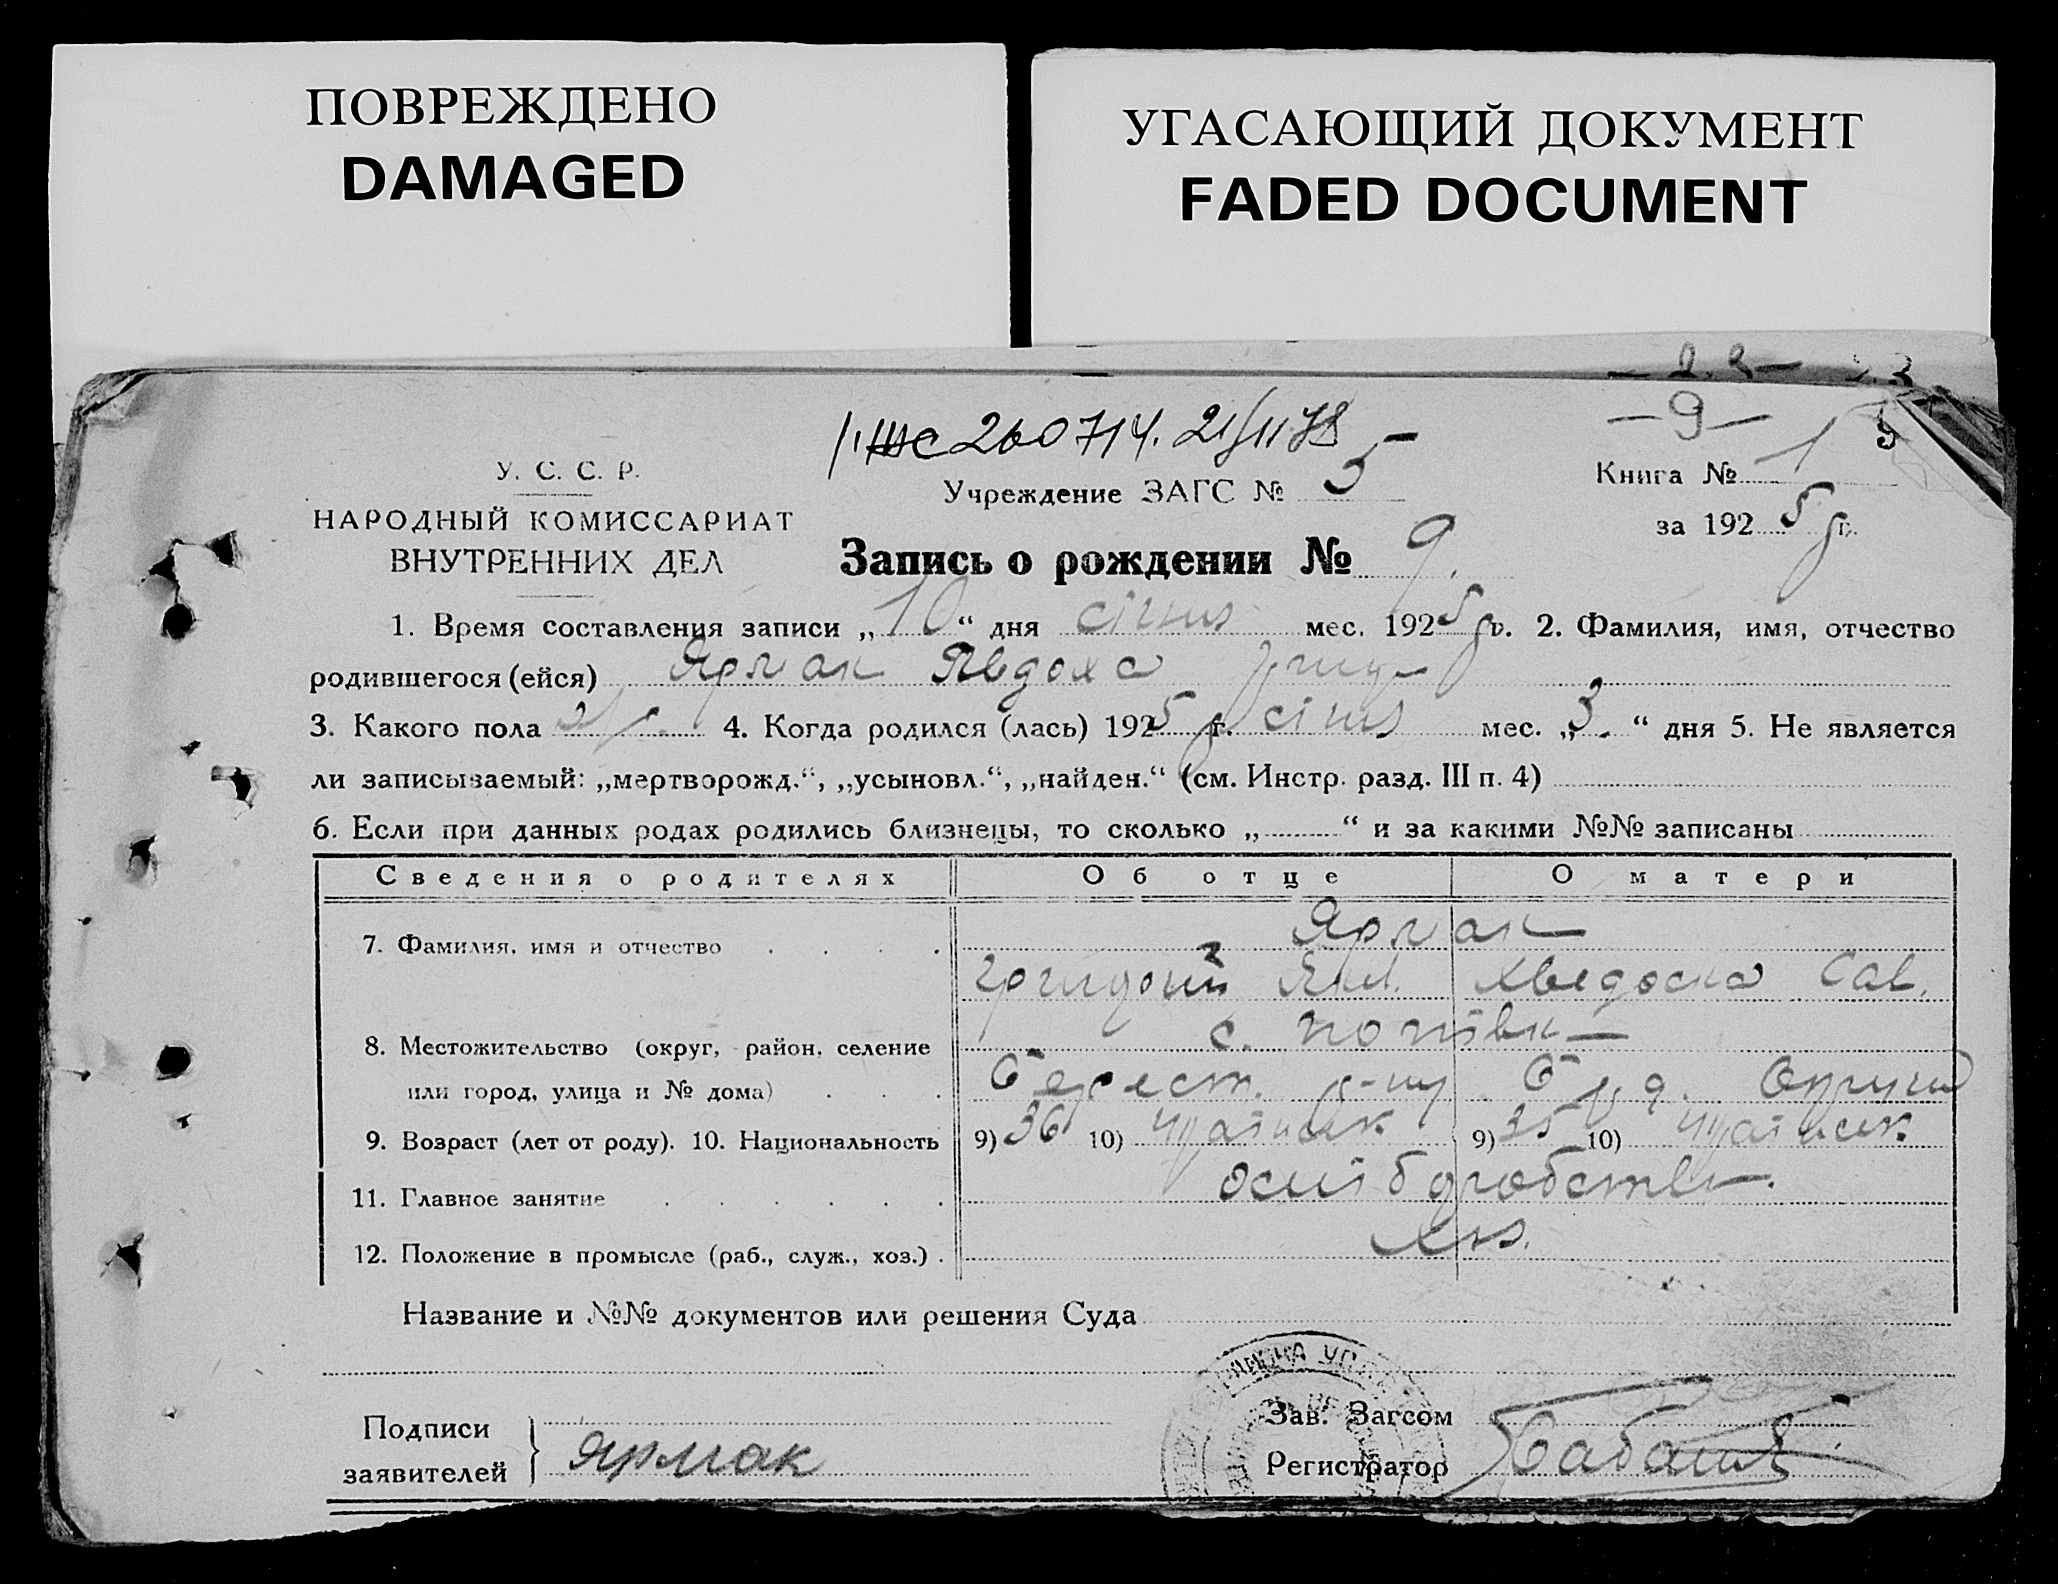 ПОВРЕЖДЕНО
DAMAGED
УГАСАЮЩИЙ ДОКУМЕНТ
FADED DOCUMENT
— 9 —
260714. 21/11 78
У. С. С. Р.
НАРОДНЫЙ КОМИССАРИАТ
ВНУТРЕННИХ ДЕЛ
Учреждение ЗАГС № 5
Книга № 1
за 1925 г.
Запись о рождении № 9.
1. Время составления записи „10“ дня січня мес. 1925 г. 2. Фамилия, имя, отчество
родившегося (ейся) Ярмак Явдоха Григ.
3. Какого пола 4. Когда родился (лась) 1925 г. січня мес. „3.“ дня 5. Не является
ли записываемый: „мертворожд.“, „усыновл.“, „найден.“ (см. Инстр. разд. III п. 4)
6. Если при данных родах родились близнецы, то сколько „ “ и за какими №№ записаны
Сведения о родителях Об отце О матери
7. Фамилия, имя и отчество Ярмак
Григорій Хведоска Сав.
с. Попівки
8. Местожительство (округ, район, селение
или город, улица и № дома) Берест. р-ну Округи
9. Возраст (лет от роду). 10. Национальность 9) 36 10) 9) 35 10)
11. Главное занятие
12. Положение в промысле (раб., служ., хоз.)
Название и №№ документов или решения Суда
Подписи
заявителей } Ярмак
Зав. Загсом
Регистратор